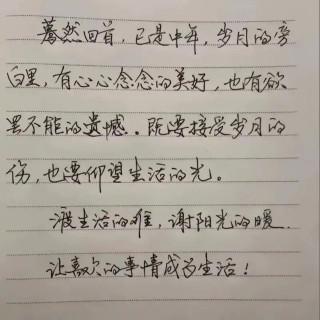 蓦然回首，已是中年，岁月的旁
白里，有心心念念的美好，也有欲
罢不能的遗憾。既要接受岁月的
伤，也要仰望生活的光。
渡生活的难，谢阳光的暖.
让喜欢的事情成为生活！